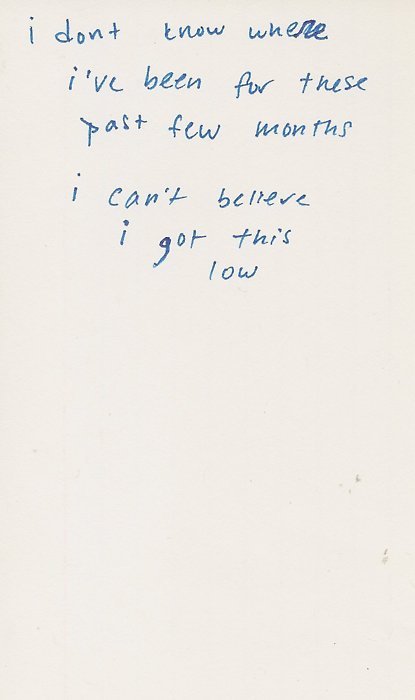 i dont know where
i've been for these
past few months
i can't believe
i got this
low